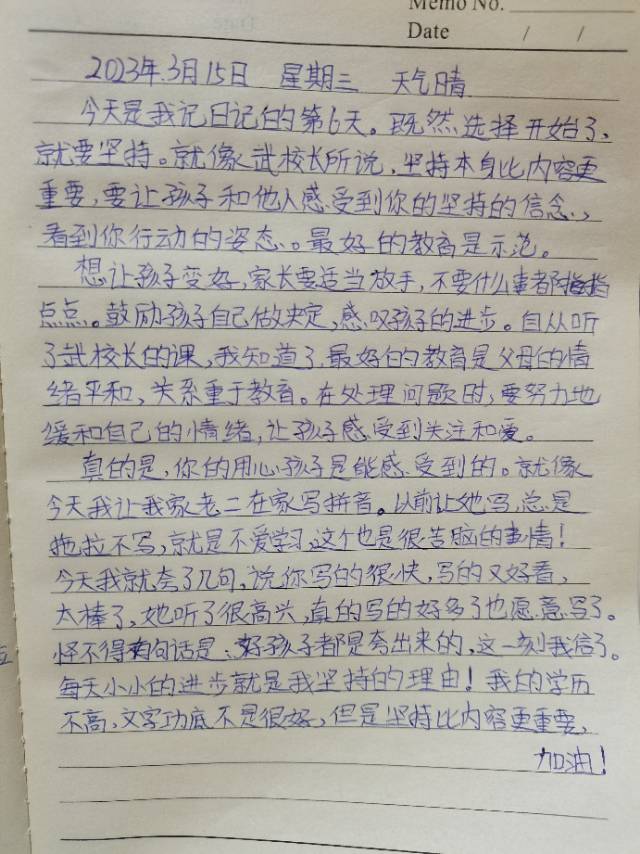 Memo No.
Date / /
2023年.3月15日 星期三 天气晴
今天是我记日记的第6天。既然选择开始了、
就要坚持。就像武校长所说，坚持本身比内容更
重要，要让孩子和他人感受到你的坚持的信念、，
看到你行动的姿态。。最好的教育是示范。
想让孩子变好，家长要适当放手，不要什么事都指指
点点。鼓励孩子自己做决定，感叹孩子的进步。自从听
了武校长的课，我知道了最好的教育是父母的情
绪平和，关系重于教育。在处理问题时，要努力地
缓和自己的情绪，让孩子感受到关注和爱。
真的是，你的用心孩子是能感受到的。就像
今天我让我家老二在家写拼音。以前让她写，总是
拖拉不写，就是不爱学习，这个也是很苦脑的事情！
今天我就夸了几句，说你写的很快，写的又好看，
太棒了，她听了很高兴，真的写的好多了也愿意写了。
怪不得有句话是：好孩子都是夸出来的，这一刻我信了。
每天小小的进步就是我坚持的理由！我的学历
不高，文字功底不是很好，但是坚持比内容更重要、
加油！